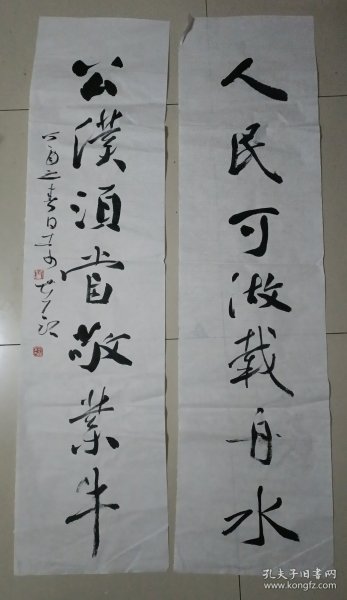 人民可做载舟水
公仆须当敬业牛
之春日
孔夫子旧书网
www.kongfz.com